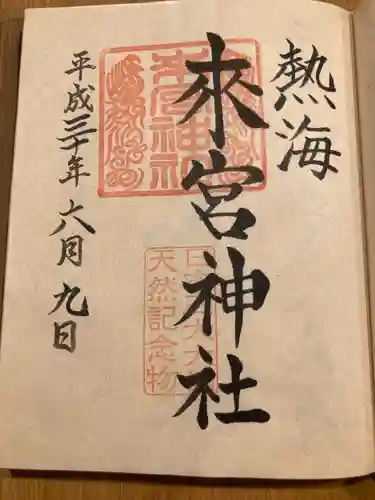 熱海
來宮神社
平成三十年六月九日
來宮神社
天然記念物